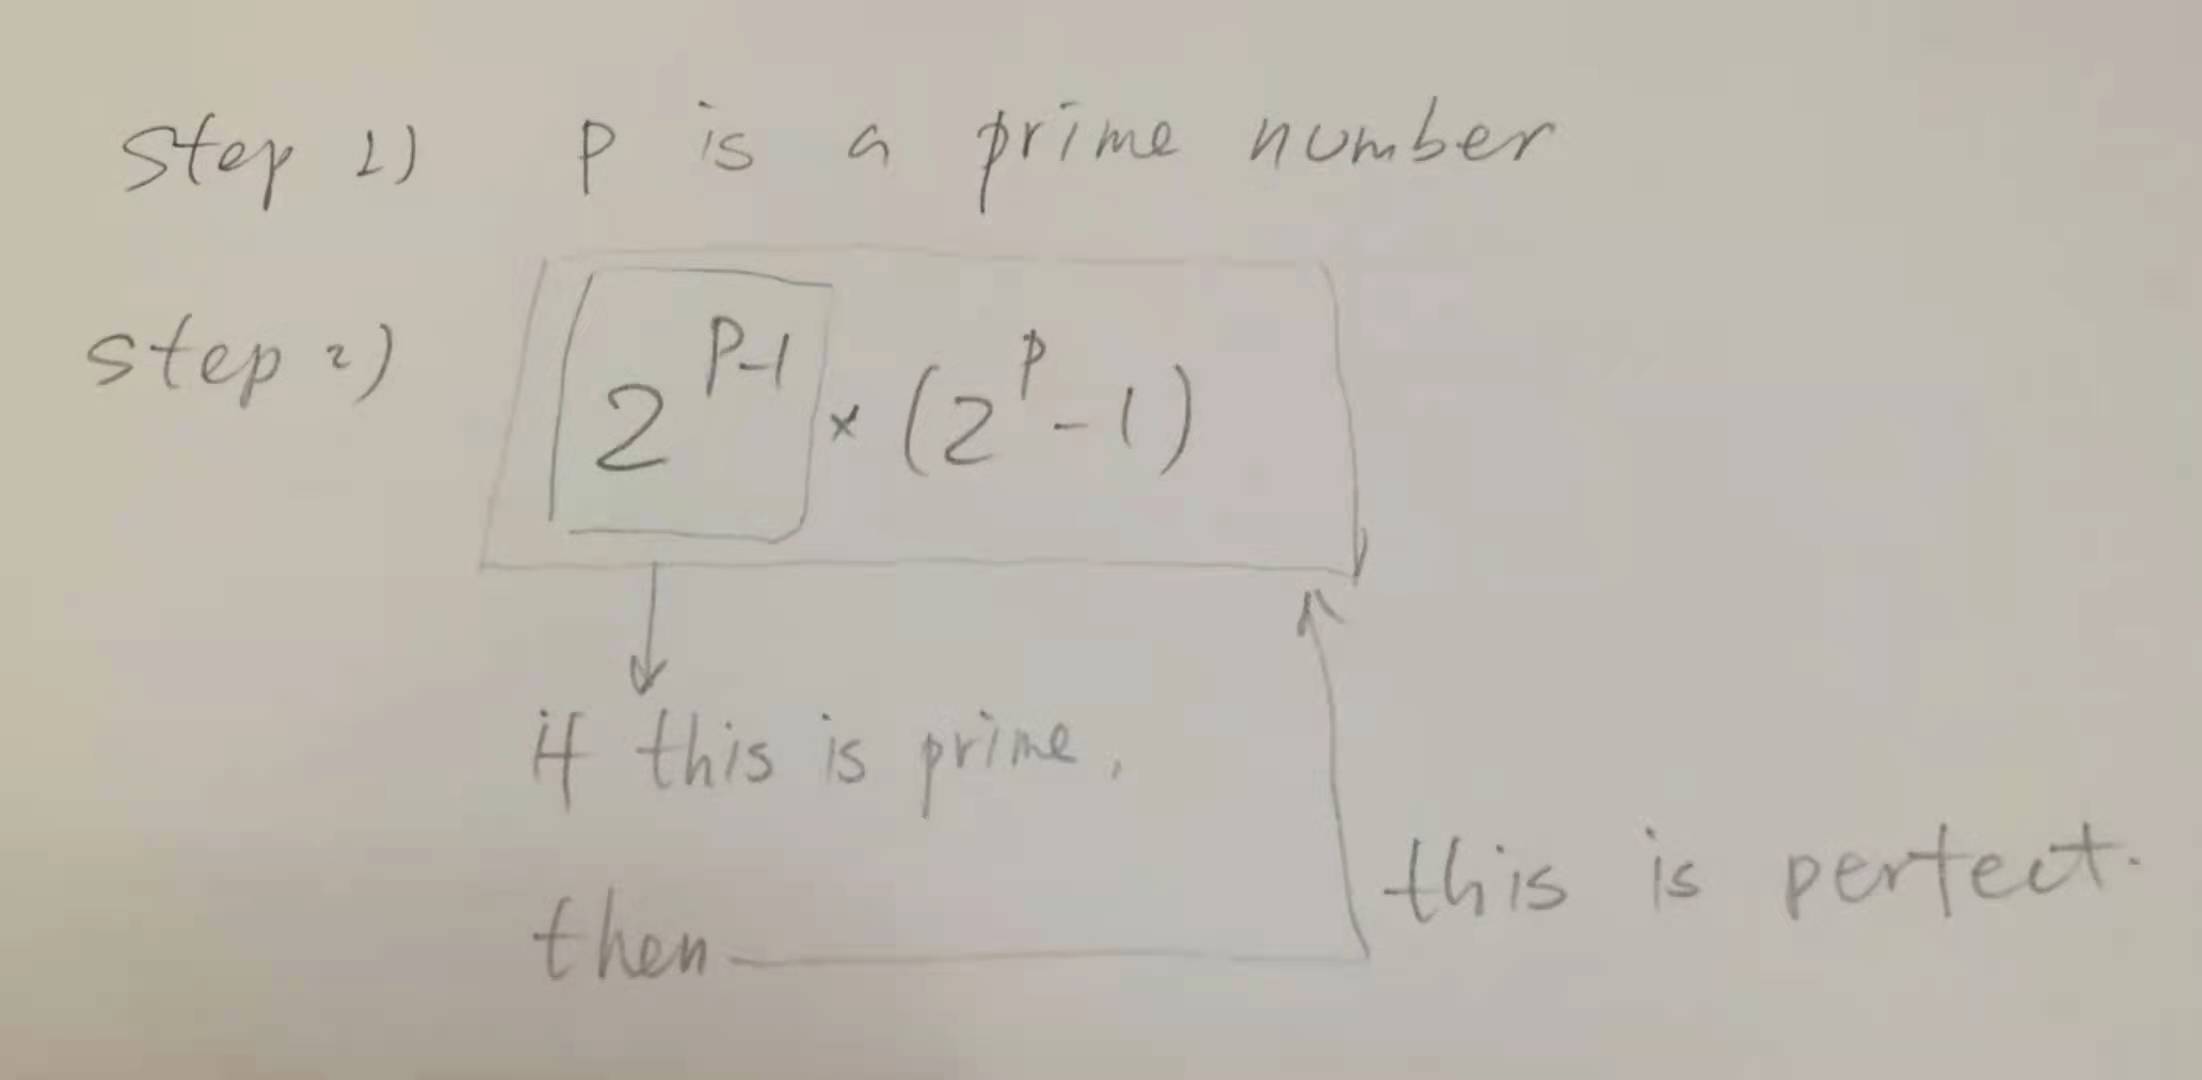 step 1) p is a prime number
step 2) 2^{p-1} × (2^p - 1)
if this is prime,
then this is perfect.